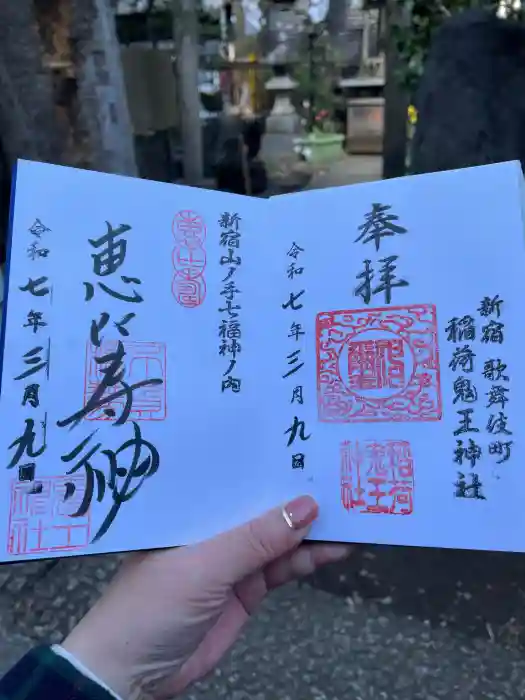 新宿 歌舞伎町
稲荷鬼王神社
奉拝
令和七年三月九日
稲荷
鬼王
神社
新宿山ノ手七福神ノ内
恵比寿神
令和七年三月九日